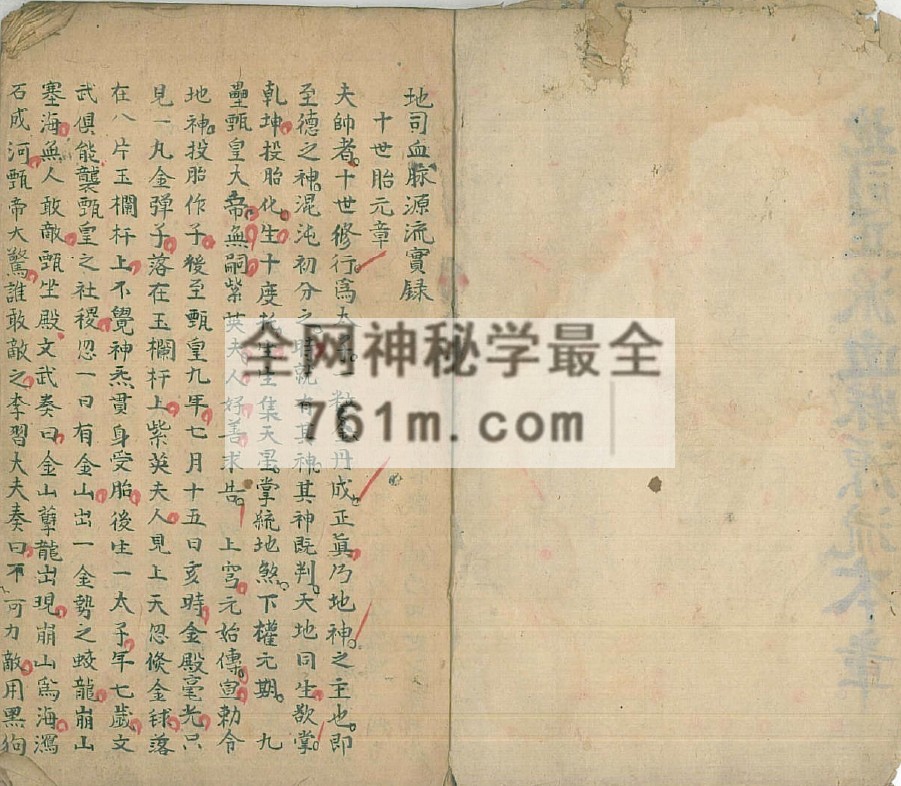 地司血脉源流實録
十世胎元章
夫帥者十世修行爲太丹成正眞乃地神之主也即
至德之神混沌初分之時就有其神其神既判天地同生欲掌
乾坤投胎化生十度生集天星掌統地煞下權元期九
壘甄皇大帝無嗣紫英夫人好善求告上穹元始傳宣勅令
地神投胎作子後至甄皇九年七月十五日亥時金殿毫光只
見一丸金弹子落在玉欄杆上紫英夫人見上天忽倏金毬落
在八片玉欄杆上不覺神炁貫身受胎後生一太子年七歲文
武俱能襲甄皇之社稷忽一日有金山出一金勢之蛟龍崩山
塞海無人敢敵甄坐殿文武奏曰金山孽龍出現崩山爲海瀉
石成河甄帝大驚誰敢敵之李習大夫奏曰不可力敵用黑狗
地司正派血脉源流本章
全网神秘学最全
761m.com